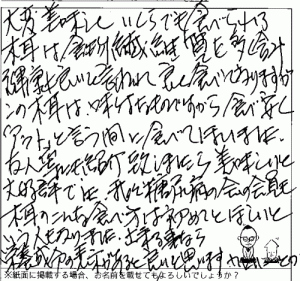 大変美味しく いくらでも食べられる
木耳は、食物繊維、鉄、質も多く含み
健康に良いと言われ 良く食べておりますが
この木耳は、味付なものですから 食べ安く
アッと、と言う間に食べてしまいました
友人達にも紹介 致しましたら 美味しいと
大好評でした、我は糖尿病の会の会員で
木耳のこんな食べ方は初めてとほしいと
いう人も有りました、出来る事なら
があると良いと思います
※紙面に掲載する場合、お名前を載せてもよろしいでしょうか？